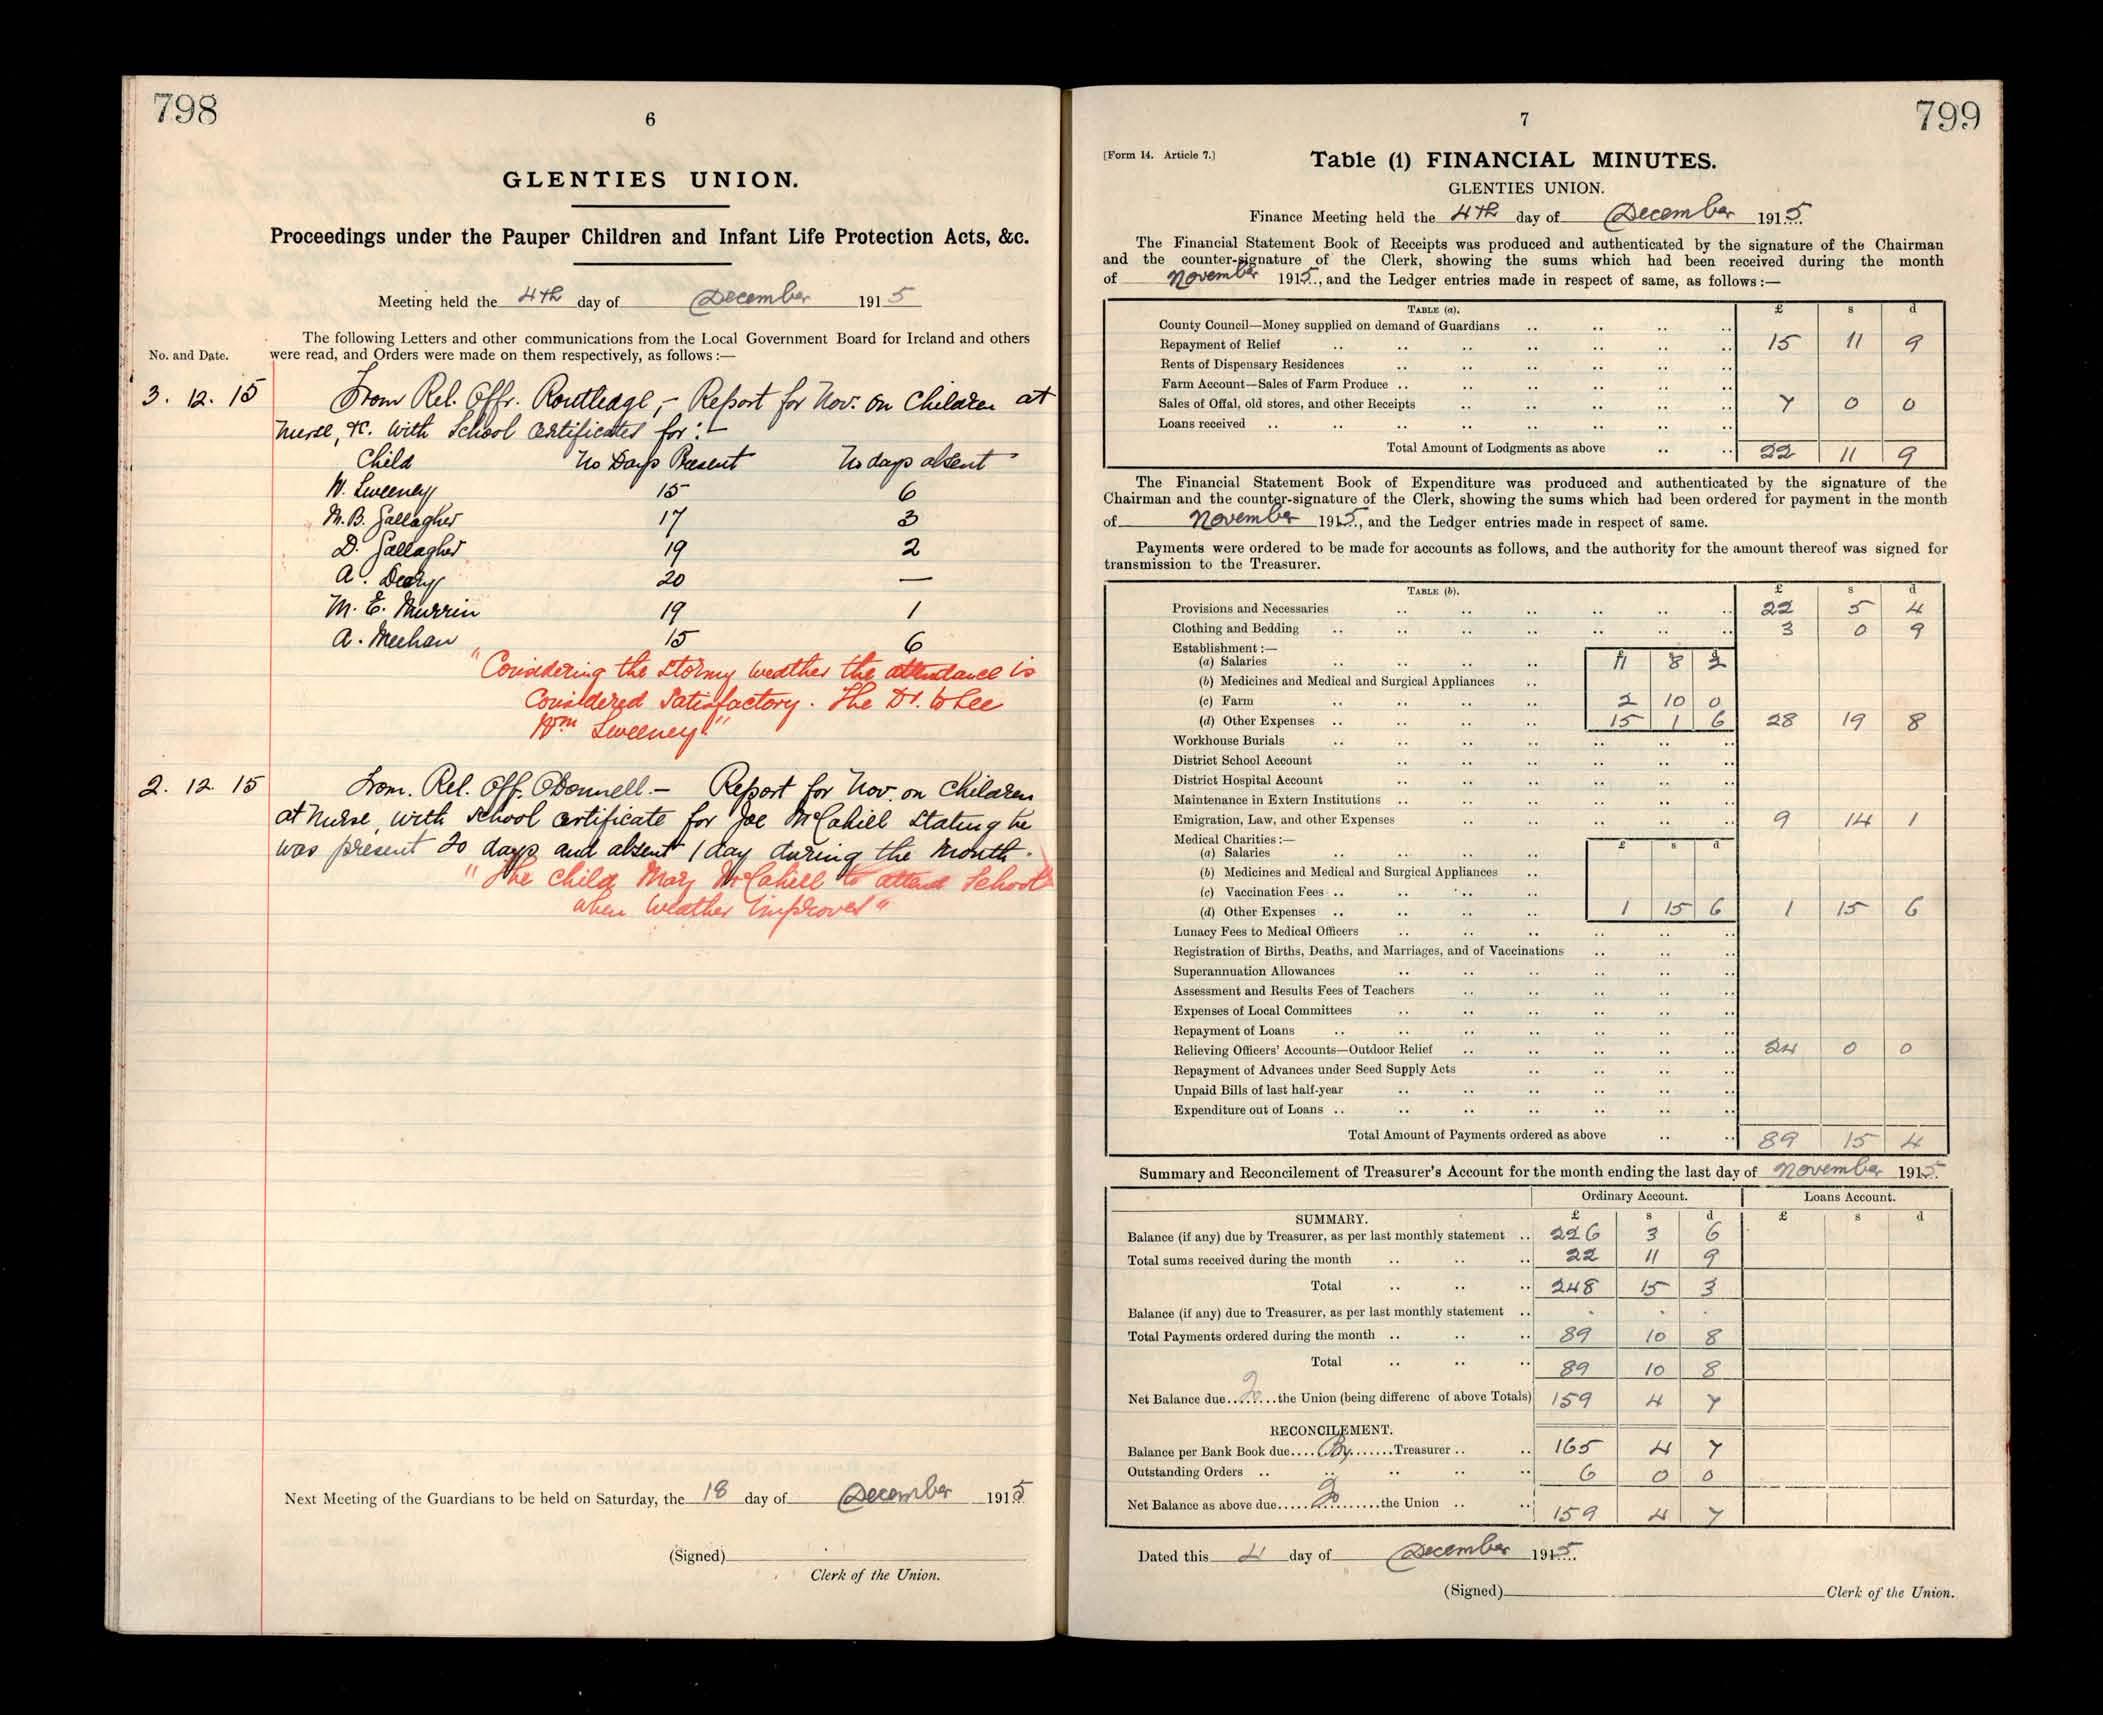 798
6
GLENTIES UNION.
Proceedings under the Pauper Children and Infant Life Protection Acts, &c.
Meeting held the 4th day of December 1915
The following Letters and other communications from the Local Government Board for Ireland and others
No. and Date. were read, and Orders were made on them respectively, as follows :—
3. 12. 15 From Rel. Offr. Routledge, - Report for Nov. on Children at
nurse, &c. with School Certificates for :-
Child No Days Present No days absent
W. Sweeney 15 6
M. B. Gallagher 17 3
D. Gallagher 19 2
A. Deary 20 —
M. E. Murrin 19 1
A. Meehan 15 6
"Considering the stormy weather the attendance is
Considered Satisfactory. The Dr. to see
Wm Sweeney."
2. 12. 15 From Rel. Off. O'Donnell. - Report for Nov. on Children
at Nurse, with School certificate for Joe McCahill stating he
was present 20 days and absent 1 day during the month.
"The child Mary McCahill to attend School
when weather improves"
Next Meeting of the Guardians to be held on Saturday, the 18 day of December 1915
(Signed)
Clerk of the Union.
799
7
[Form 14. Article 7.] Table (1) FINANCIAL MINUTES.
GLENTIES UNION.
Finance Meeting held the 4th day of December 1915
The Financial Statement Book of Receipts was produced and authenticated by the signature of the Chairman
and the counter-signature of the Clerk, showing the sums which had been received during the month
of November 1915., and the Ledger entries made in respect of same, as follows :—
TABLE (a). £ s d
County Council—Money supplied on demand of Guardians
Repayment of Relief 15 11 9
Rents of Dispensary Residences
Farm Account—Sales of Farm Produce
Sales of Offal, old stores, and other Receipts 7 0 0
Loans received
Total Amount of Lodgments as above 22 11 9
The Financial Statement Book of Expenditure was produced and authenticated by the signature of the
Chairman and the counter-signature of the Clerk, showing the sums which had been ordered for payment in the month
of November 1915., and the Ledger entries made in respect of same.
Payments were ordered to be made for accounts as follows, and the authority for the amount thereof was signed for
transmission to the Treasurer.
TABLE (b). £ s d
Provisions and Necessaries 22 5 4
Clothing and Bedding 3 0 9
Establishment :— £ s d
(a) Salaries 11 8 2
(b) Medicines and Medical and Surgical Appliances
(c) Farm 2 10 0
(d) Other Expenses 15 1 6 28 19 8
Workhouse Burials
District School Account
District Hospital Account
Maintenance in Extern Institutions
Emigration, Law, and other Expenses 9 14 1
Medical Charities :— £ s d
(a) Salaries
(b) Medicines and Medical and Surgical Appliances
(c) Vaccination Fees
(d) Other Expenses 1 15 6 1 15 6
Lunacy Fees to Medical Officers
Registration of Births, Deaths, and Marriages, and of Vaccinations
Superannuation Allowances
Assessment and Results Fees of Teachers
Expenses of Local Committees
Repayment of Loans
Relieving Officers' Accounts—Outdoor Relief 24 0 0
Repayment of Advances under Seed Supply Acts
Unpaid Bills of last half-year
Expenditure out of Loans
Total Amount of Payments ordered as above 89 15 4
Summary and Reconcilement of Treasurer's Account for the month ending the last day of November 1915.
Ordinary Account. Loans Account.
SUMMARY. £ s d £ s d
Balance (if any) due by Treasurer, as per last monthly statement 226 3 6
Total sums received during the month 22 11 9
Total 248 15 3
Balance (if any) due to Treasurer, as per last monthly statement
Total Payments ordered during the month 89 10 8
Total 89 10 8
Net Balance due To the Union (being differenc of above Totals) 159 4 7
RECONCILEMENT.
Balance per Bank Book due By Treasurer 165 4 7
Outstanding Orders 6 0 0
Net Balance as above due To the Union 159 4 7
Dated this 4 day of December 1915.
(Signed) Clerk of the Union.